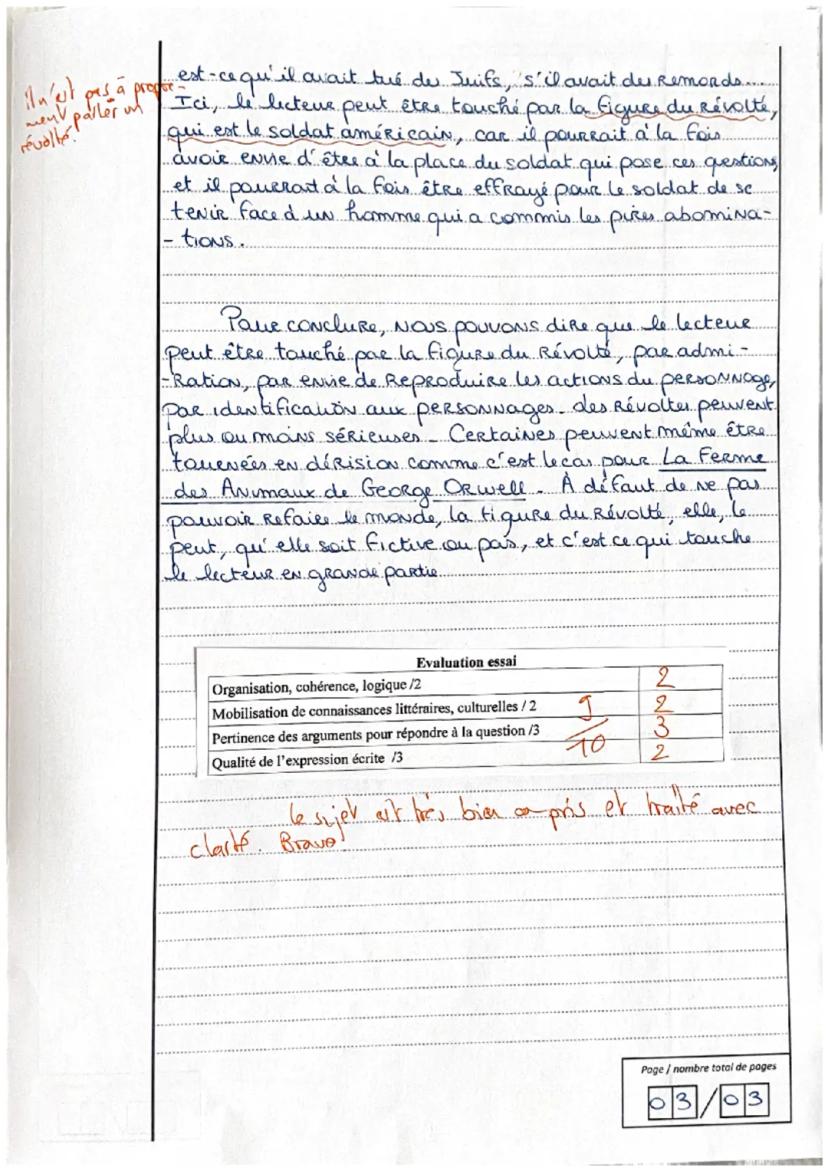 il n'est pas à propre-
ment parler un
révolté.
est-ce qu'il avait tué des Juifs, s'il avait des remords...
Ici, le lecteur peut être touché par la figure du Révolté,
qui est le soldat américain, car il pourrait à la fois
avoir envie d'être à la place du soldat qui pose ces questions,
et il pourrait à la fois être effrayé pour le soldat de se
tenir face à un homme qui a commis les pires abomina-
-tions.
Pour conclure, nous pouvons dire que le lecteur
peut être touché par la figure du Révolté, par admi-
-ration, par envie de reproduire les actions du personnage,
par identification aux personnages. des Révoltes peuvent
plus ou moins sérieuses. Certaines peuvent même être
tournées en dérision comme c'est le cas pour La Ferme
des Animaux de George Orwell. À défaut de ne pas
pouvoir refaire le monde, la figure du Révolté, elle, le
peut, qu'elle soit fictive ou pas, et c'est ce qui touche
le lecteur en grande partie.
Evaluation essai
Organisation, cohérence, logique /2 2
Mobilisation de connaissances littéraires, culturelles / 2 2
Pertinence des arguments pour répondre à la question /3 3
Qualité de l'expression écrite /3 2
9/10
le sujet est très bien compris et traité avec
clarté. Bravo!
Page / nombre total de pages
03/03